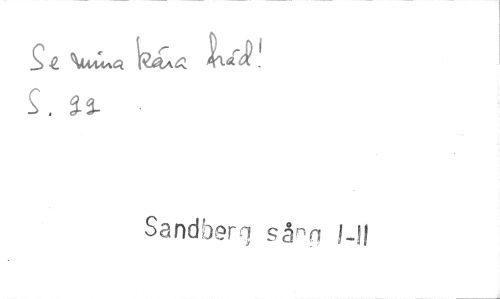 Se mina kära träd!
S. 99
Sandberg sång I-II